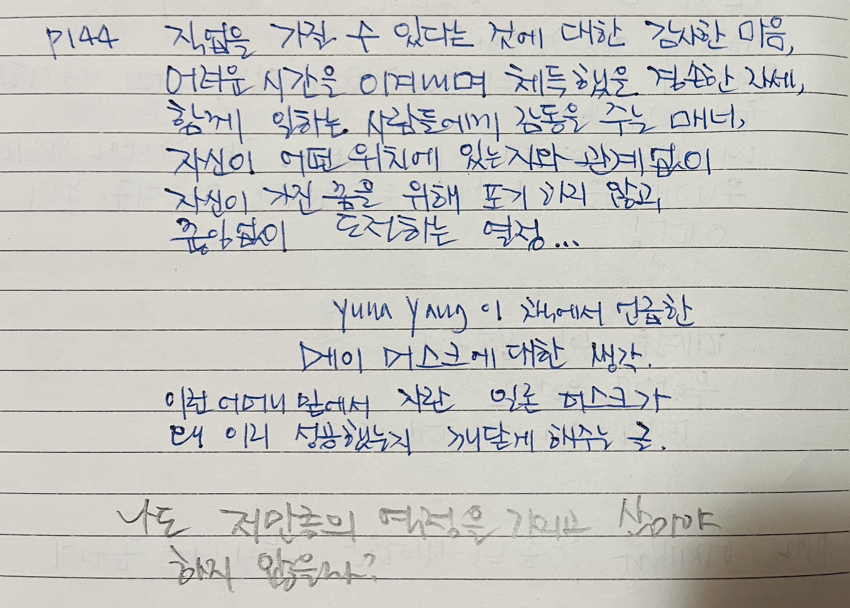 P144 직업을 가질 수 있다는 것에 대한 감사한 마음,
어려운 시간을 이겨내며 체득했을 겸손한 자세,
함께 일하는 사람들에게 감동을 주는 매너,
자신이 어떤 위치에 있는지와 관계없이
자신이 가진 꿈을 위해 포기 하지 않고,
끊임없이 도전하는 열정...
Yuna Yang 이 책에서 언급한
메이 머스크에 대한 생각.
이런 어머니 밑에서 자란 일론 머스크가
왜 이리 성공했는지 깨닫게 해주는 글.
나도 저만큼의 열정을 가지고 살아야
하지 않을까?